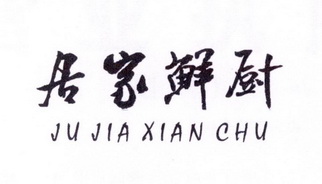 居家鲜厨
JU JIA XIAN CHU